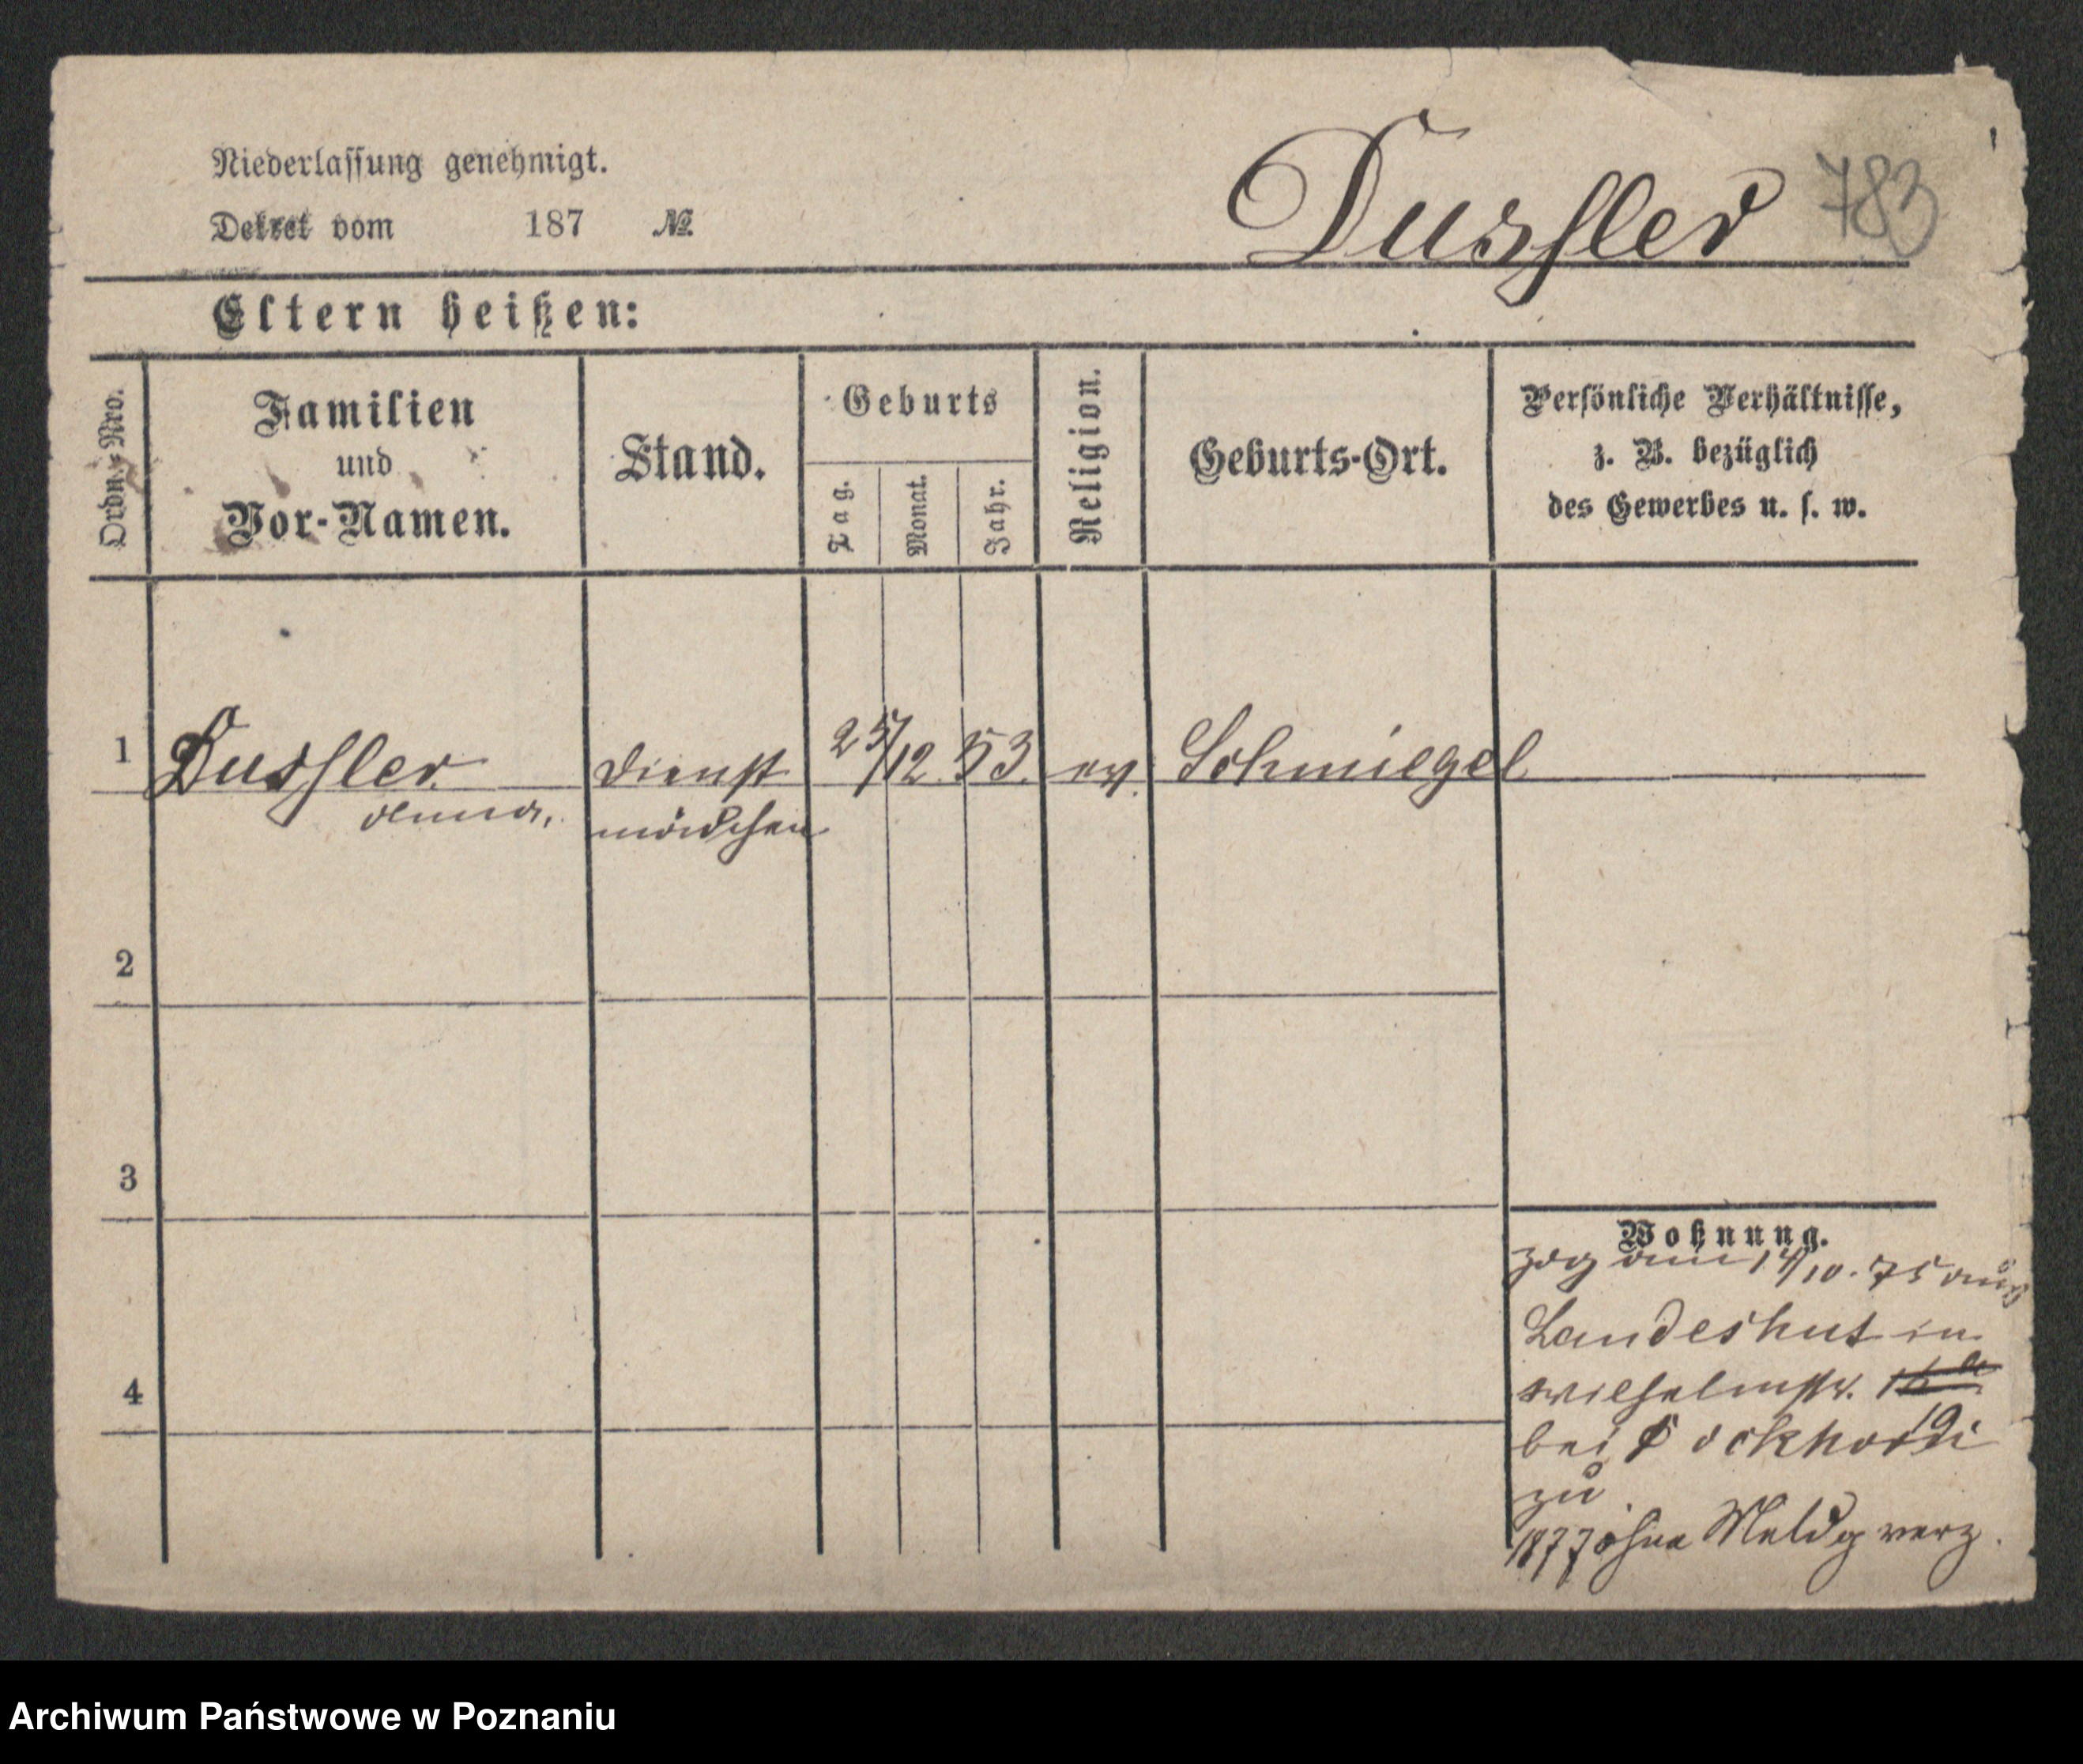 Niederlassung genehmigt.
Dekret vom 187 №
Dussler 783
Eltern heißen:
Ordn.-Nro.
Familien
und
Vor-Namen.
Stand.
Geburts
Tag.
Monat.
Jahr.
Religion.
Geburts-Ort.
Persönliche Verhältnisse,
z. B. bezüglich
des Gewerbes u. s. w.
1 Dussler Dienst 25/12 53. ev. Schmiegel
Anna, mädchen
2
3
4
Wohnung.
zog am 14/10. 75 aus
Landeshut in
Wilhelmstr.
19
bei
zu
1877 ohne Meldg verz.
Archiwum Państwowe w Poznaniu